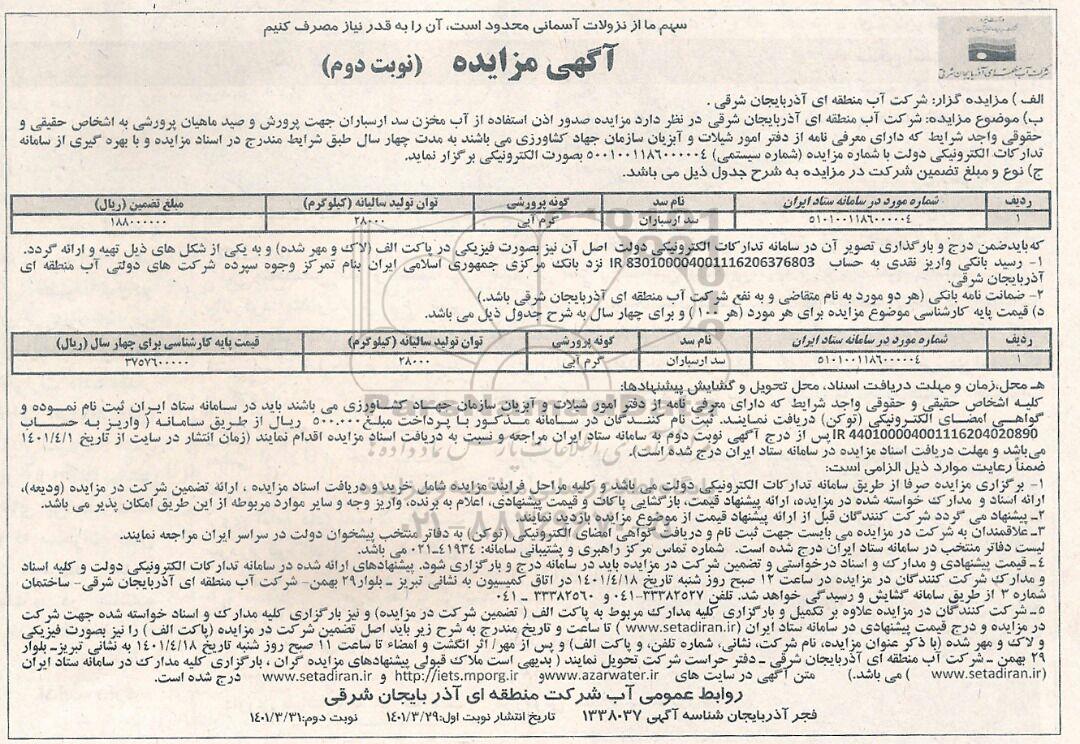 سهم ما از نزولات آسمانی محدود است، آن را به قدر نیاز مصرف کنیم
شرکت آب منطقه‌ای آذربایجان شرقی
آگهی مزایده (نوبت دوم)
الف) مزایده گزار: شرکت آب منطقه ای آذربایجان شرقی.
ب) موضوع مزایده: شرکت آب منطقه ای آذربایجان شرقی در نظر دارد مزایده صدور اذن استفاده از آب مخزن سد ارسباران جهت پرورش و صید ماهیان پرورشی به اشخاص حقیقی و
حقوقی واجد شرایط که دارای معرفی نامه از دفتر امور شیلات و آبزیان سازمان جهاد کشاورزی می باشند به مدت چهار سال طبق شرایط مندرج در اسناد مزایده و با بهره گیری از سامانه
تدارکات الکترونیکی دولت با شماره مزایده (شماره سیستمی) ۵۰۰۱۰۰۱۱۸۶۰۰۰۰۰۴ بصورت الکترونیکی برگزار نماید.
ج) نوع و مبلغ تضمین شرکت در مزایده به شرح جدول ذیل می باشد.
ردیف شماره مورد در سامانه ستاد ایران نام سد گونه پرورشی توان تولید سالیانه (کیلوگرم) مبلغ تضمین (ریال)
۱ ۵۱۰۱۰۰۱۱۸۶۰۰۰۰۰۴ سد ارسباران گرم آبی ۲۸۰۰۰ ۱۸۸۰۰۰۰۰۰
که باید ضمن درج و بارگذاری تصویر آن در سامانه تدارکات الکترونیکی دولت اصل آن نیز بصورت فیزیکی در پاکت الف (لاک و مهر شده) و به یکی از شکل های ذیل تهیه و ارائه گردد.
۱- رسید بانکی واریز نقدی به حساب IR 830100004001116206376803 نزد بانک مرکزی جمهوری اسلامی ایران بنام تمرکز وجوه سپرده شرکت های دولتی آب منطقه ای
آذربایجان شرقی.
۲- ضمانت نامه بانکی (هر دو مورد به نام متقاضی و به نفع شرکت آب منطقه ای آذربایجان شرقی باشد.)
د) قیمت پایه کارشناسی موضوع مزایده برای هر مورد (هر ۱۰۰) و برای چهار سال به شرح جدول ذیل می باشد.
ردیف شماره مورد در سامانه ستاد ایران نام سد گونه پرورشی توان تولید سالیانه (کیلوگرم) قیمت پایه کارشناسی برای چهار سال (ریال)
۱ ۵۱۰۱۰۰۱۱۸۶۰۰۰۰۰۴ سد ارسباران گرم آبی ۲۸۰۰۰ ۳۷۵۷۶۰۰۰۰۰
هـ محل، زمان و مهلت دریافت اسناد، محل تحویل و گشایش پیشنهادها:
کلیه اشخاص حقیقی و حقوقی واجد شرایط که دارای معرفی نامه از دفتر امور شیلات و آبزیان سازمان جهاد کشاورزی می باشند باید در سامانه ستاد ایران ثبت نام نموده و
گواهی امضای الکترونیکی (توکن) دریافت نمایند. ثبت نام کنندگان در سامانه مذکور با پرداخت مبلغ ۵۰۰.۰۰۰ ریال از طریق سامانه (واریز به حساب
IR 440100004001116204020890 پس از درج آگهی نوبت دوم به سامانه ستاد ایران مراجعه و نسبت به دریافت اسناد مزایده اقدام نمایند (زمان انتشار در سایت از تاریخ ۱۴۰۱/۴/۱
می باشد و مهلت دریافت اسناد مزایده در سامانه ستاد ایران درج شده است).
ضمناً رعایت موارد ذیل الزامی است:
۱- برگزاری مزایده صرفا از طریق سامانه تدارکات الکترونیکی دولت می باشد و کلیه مراحل فرایند مزایده شامل خرید و دریافت اسناد مزایده، ارائه تضمین شرکت در مزایده (ودیعه)،
ارائه اسناد و مدارک خواسته شده در مزایده، ارائه پیشنهاد قیمت، بازگشایی پاکات و قیمت پیشنهادی، اعلام به برنده، واریز وجه و سایر موارد مربوطه از این طریق امکان پذیر می باشد.
۲- پیشنهاد می گردد شرکت کنندگان قبل از ارائه پیشنهاد قیمت از موضوع مزایده بازدید نمایند.
۳- علاقمندان به شرکت در مزایده می بایست جهت ثبت نام و دریافت گواهی امضای الکترونیکی (توکن) به دفاتر منتخب پیشخوان دولت در سراسر ایران مراجعه نمایند.
لیست دفاتر منتخب در سامانه ستاد ایران درج شده است. شماره تماس مرکز راهبری و پشتیبانی سامانه: ۴۱۹۳۴-۰۲۱ می باشد.
۴- قیمت پیشنهادی و مدارک و اسناد درخواستی و تضمین شرکت در مزایده باید در سامانه درج و بارگزاری شود. پیشنهادهای ارائه شده در سامانه تدارکات الکترونیکی دولت و کلیه اسناد
و مدارک شرکت کنندگان در مزایده در ساعت ۱۲ صبح روز شنبه تاریخ ۱۴۰۱/۴/۱۸ در اتاق کمیسیون به نشانی تبریز ـ بلوار ۲۹ بهمن- شرکت آب منطقه ای آذربایجان شرقی- ساختمان
شماره ۳ از طریق سامانه گشایش و رسیدگی خواهد شد. تلفن ۳۳۳۸۲۵۲۷-۰۴۱ و ۳۳۳۸۲۵۶۰ ـ ۰۴۱
۵- شرکت کنندگان در مزایده علاوه بر تکمیل و بارگزاری کلیه مدارک مربوط به پاکت الف (تضمین شرکت در مزایده) و نیز بارگزاری کلیه مدارک و اسناد خواسته شده جهت شرکت
در مزایده و درج قیمت پیشنهادی در سامانه ستاد ایران (www.setadiran.ir) تا ساعت و تاریخ مندرج به شرح زیر باید اصل تضمین شرکت در مزایده (پاکت الف) را نیز بصورت فیزیکی
و لاک و مهر شده (با ذکر عنوان مزایده، نام شرکت، نشانی، شماره تلفن، و پاکت الف) و پس از مهر/ اثر انگشت و امضاء تا ساعت ۱۱ صبح روز شنبه تاریخ ۱۴۰۱/۴/۱۸ به نشانی تبریزـ بلوار
۲۹ بهمن ـ شرکت آب منطقه ای آذربایجان شرقی ـ دفتر حراست شرکت تحویل نمایند (بدیهی است ملاک قبولی پیشنهادهای مزایده گران، بارگزاری کلیه مدارک در سامانه ستاد ایران
(www.setadiran.ir) می باشد.) متن آگهی در سایت های www.azarwater.ir و http://iets.mporg.ir و www.setadiran.ir درج شده است.
روابط عمومی آب شرکت منطقه ای آذربایجان شرقی
فجر آذربایجان شناسه آگهی ۱۳۳۸۰۳۷ تاریخ انتشار نوبت اول: ۱۴۰۱/۳/۲۹ نوبت دوم: ۱۴۰۱/۳/۳۱
ParsNamadData